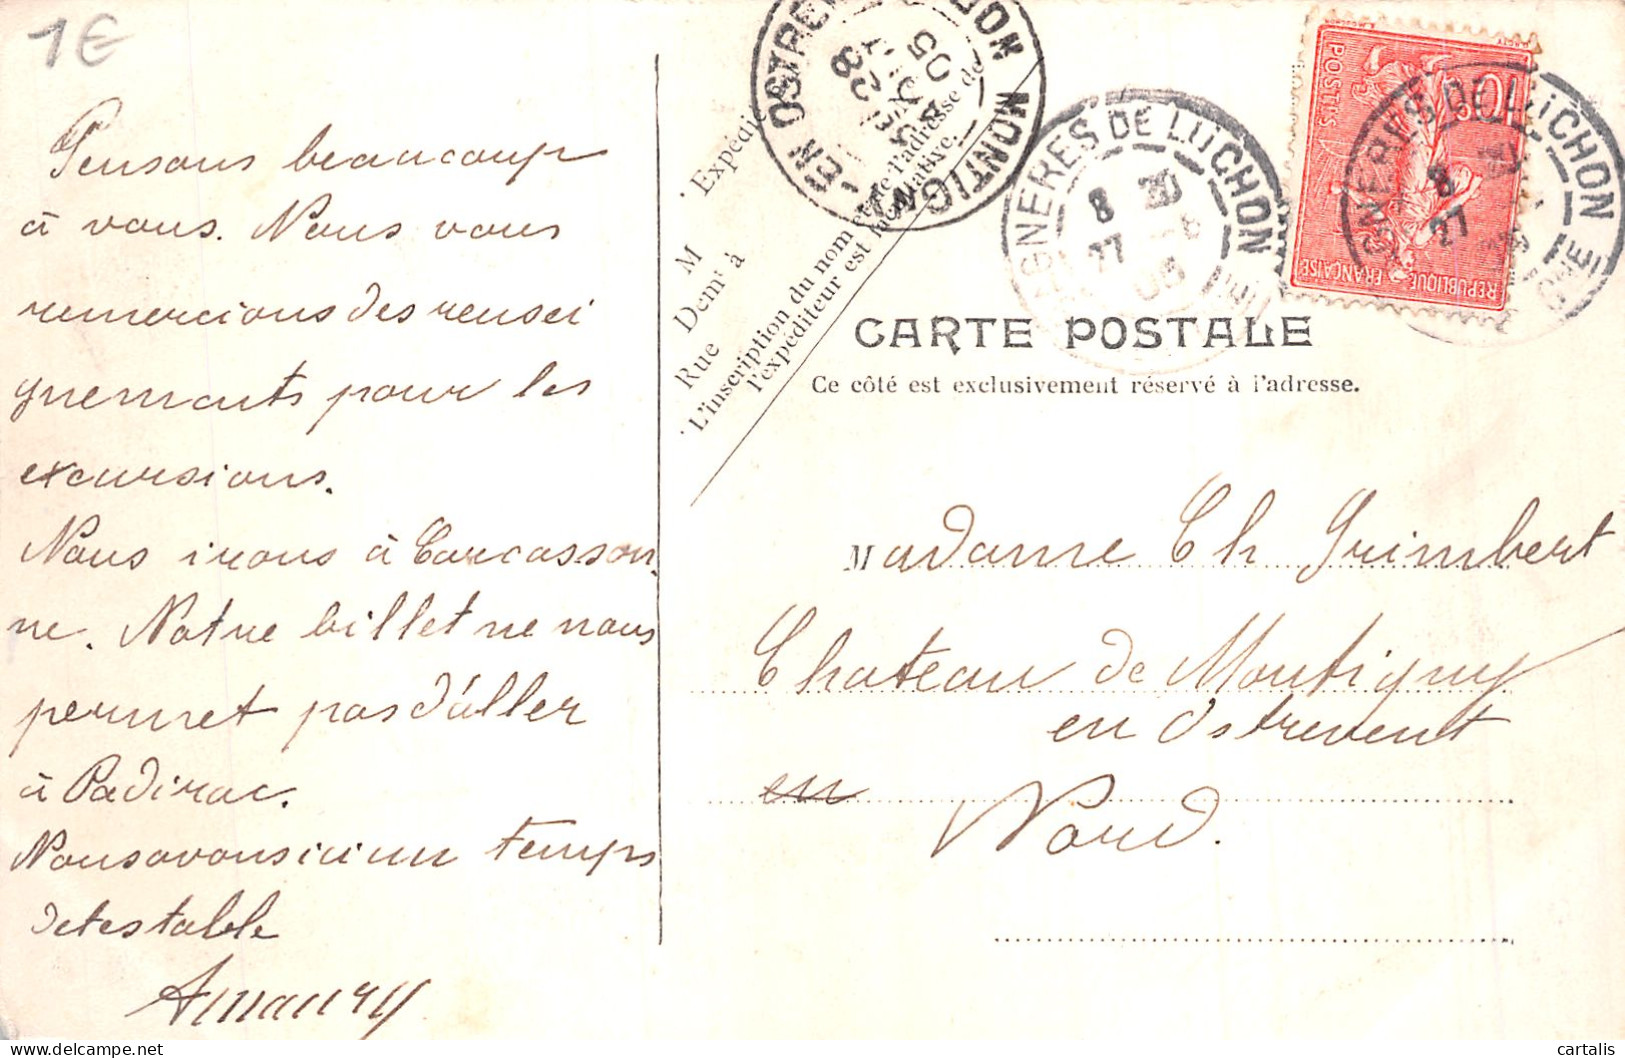 1€
Pensons beaucoup
à vous. Nous vous
remercions des rensei
gnements pour les
excursions.
Nous irons à Carcasson
ne. Notre billet ne nous
permet pas d'aller
à Padirac.
Nous avons ici un temps
detestable
Amaury
Expédié
M
Demt à
Rue
L'inscription du nom et de l'adresse de
l'expéditeur est facultative.
MONTIGNY-EN-OSTREVENT
28
05
BAGNERES DE LUCHON
8 30
27 -8
05
POSTES
10c
REPUBLIQUE FRANÇAISE
BAGNERES DE LUCHON
8
27
CARTE POSTALE
Ce côté est exclusivement réservé à l'adresse.
Madame Ch Grimbert
Chateau de Montigny
en Ostrevent
en
Nord.
cartalis